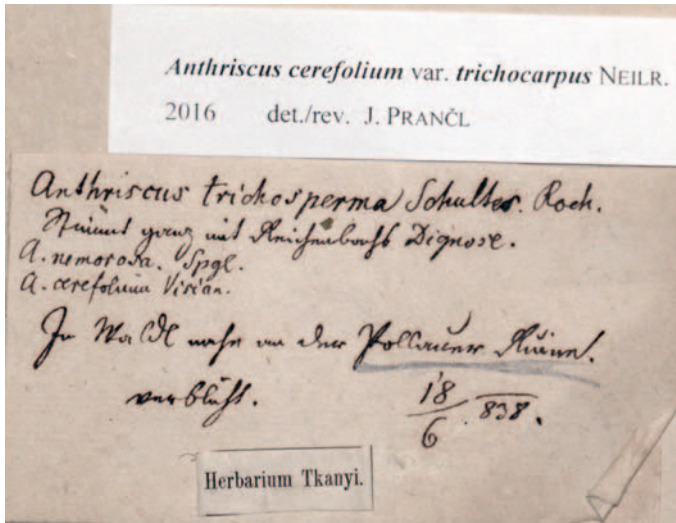 Anthriscus cerefolium var. trichocarpus NEILR.
2016 det./rev. J. PRANČL
Anthriscus trichosperma Schultes. Roch.
Stimmt ganz mit Reichenbachs Dignose.
A. nemorosa. Spgl.
A. cerefolium Visian.
In Waldl nahe an der Pollauer Ruine.
verblüht. 18/6. 838.
Herbarium Tkanyi.